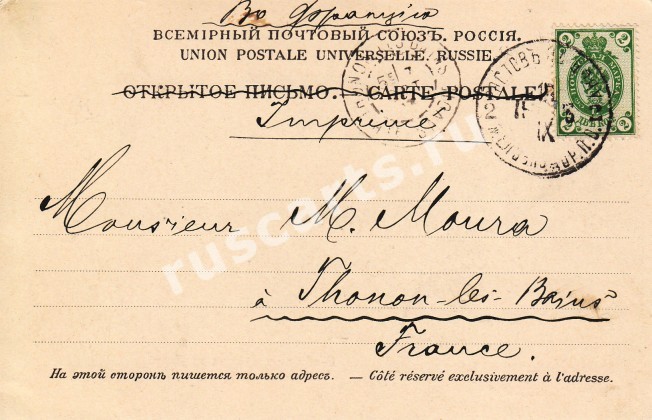 Во Францію
ВСЕМІРНЫЙ ПОЧТОВЫЙ СОЮЗЪ. РОССІЯ.
UNION POSTALE UNIVERSELLE. RUSSIE.
ОТКРЫТОЕ ПИСЬМО. — CARTE POSTALE.
Imprimé
2 2
2 2
РОСТОВЪ
15 IX
Monsieur M. Moura
à Thonon-les-Bains
France.
На этой сторонѣ пишется только адресъ. — Côté réservé exclusivement à l'adresse.
ruscards.ru